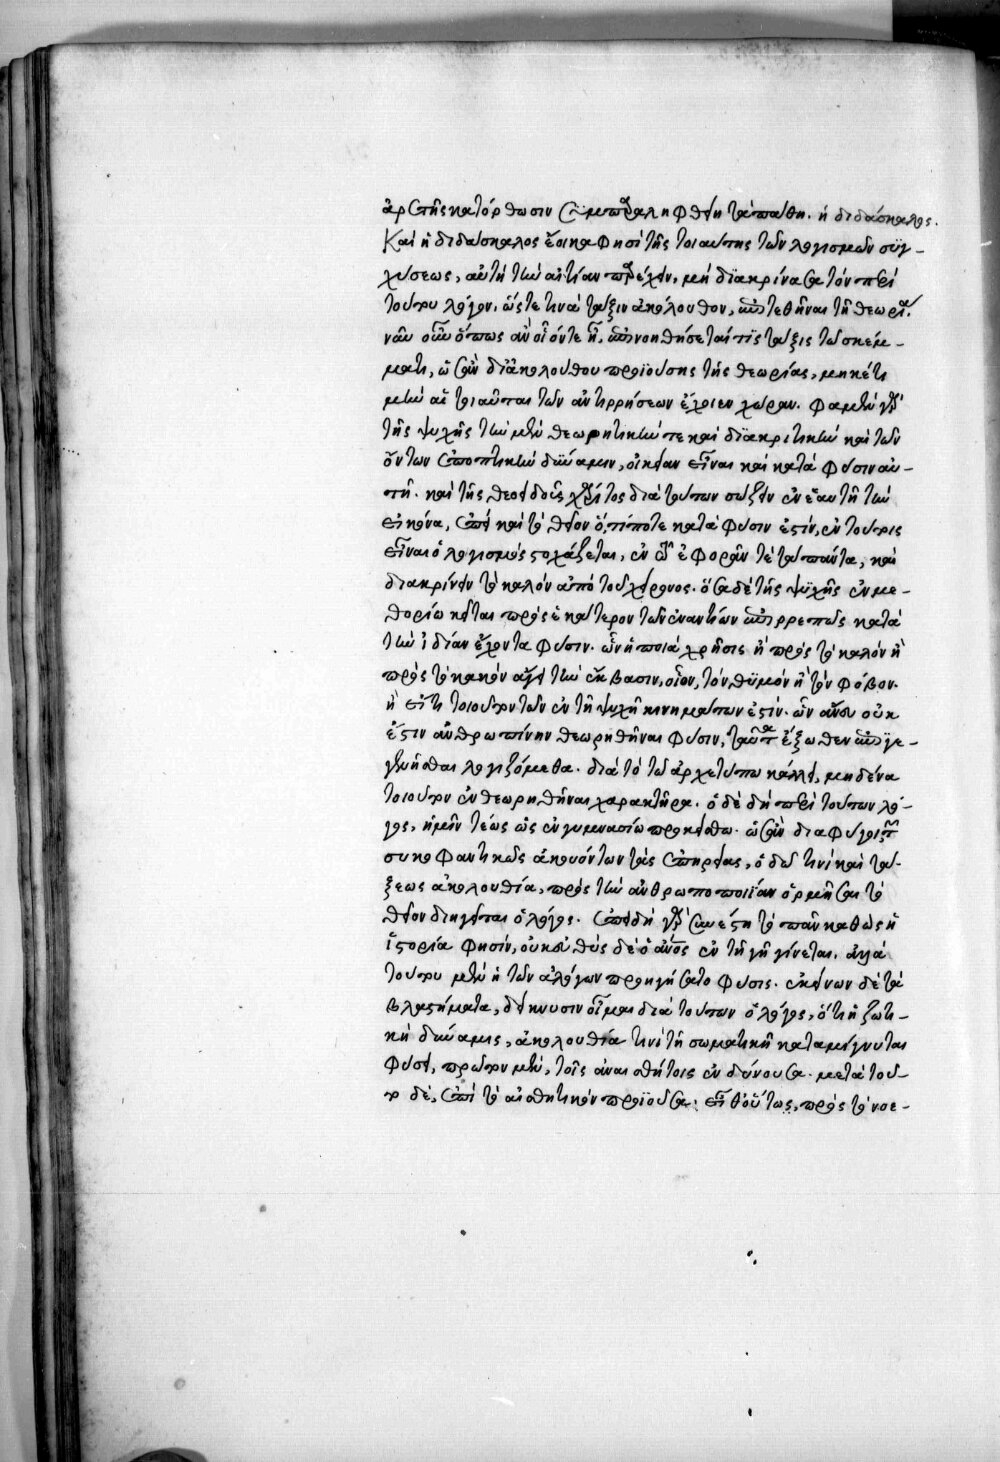 ἀρετῆς κατόρθωσιν συμπαραληφθῆναι τὰ πάθη. ἡ διδάσκαλος.
Καὶ ἡ διδάσκαλος ἔοικα φησὶ τῆς τοιαύτης τῶν λογισμῶν συγ-
χύσεως, αὐτὴ τὴν αἰτίαν παρέχειν, μὴ διακρίνασα τὸν περὶ
τούτου λόγον, ὥστε τινὰ τάξιν ἀκόλουθον, ἐπιτεθῆναι τῇ θεωρίᾳ.
νῦν οὖν ὅπως ἂν οἷόν τε ᾖ, ἐπινοηθήσεταί τις τάξις τῷ σκέμ-
ματι, ὡς ἂν δι' ἀκολούθου προϊούσης τῆς θεωρίας, μηκέτι
μὲν αἱ τοιαῦται τῶν ἀντιρρήσεων ἔχοιεν χώραν. φαμὲν γὰρ
τῆς ψυχῆς τὴν μὲν θεωρητικήν τε καὶ διακριτικὴν καὶ τῶν
ὄντων ἐποπτικὴν δύναμιν, οἰκείαν εἶναι καὶ κατὰ φύσιν αὐ-
τῇ. καὶ τῆς θεοειδοῦς χάριτος διὰ τούτων σώζειν ἐν ἑαυτῇ τὴν
εἰκόνα, ἐπεὶ καὶ τὸ θεῖον ὅ,τί ποτε κατὰ φύσιν ἐστίν, ἐν τούτοις
εἶναι ὁ λογισμὸς στοχάζεται, ἐν τῷ ἐφορᾶν τε τὰ πάντα, καὶ
διακρίνειν τὸ καλὸν ἀπὸ τοῦ χείρονος. ὅσα δὲ τῆς ψυχῆς ἐν με-
θορίῳ κεῖται πρὸς ἑκάτερον τῶν ἐναντίων ἐπιρρεπῶς κατὰ
τὴν ἰδίαν ἔχοντα φύσιν. ὧν ἡ ποιὰ χρῆσις ἢ πρὸς τὸ καλὸν ἢ
πρὸς τὸ κακὸν ἄγει τὴν ἔκβασιν, οἷον, τὸν θυμὸν ἢ τὸν φόβον.
ἢ εἴ τι τοιοῦτον τῶν ἐν τῇ ψυχῇ κινημάτων ἐστίν. ὧν ἄνευ οὐκ
ἔστιν ἀνθρωπίνην θεωρηθῆναι φύσιν, ταῦτα ἔξωθεν ἐπιγε-
γενῆσθαι λογιζόμεθα. διὰ τὸ τῷ ἀρχετύπῳ κάλλει, μηδένα
τοιοῦτον ἐνθεωρηθῆναι χαρακτῆρα. ὁ δὲ δὴ περὶ τούτων λό-
γος, ἡμῖν τέως ὡς ἐν γυμνασίῳ προκείσθω. ὡς ἂν διαφύγοι τῶν
συκοφαντικῶς ἀκουόντων τὰς ἐπηρείας, ὁδῷ τινὶ καὶ τά-
ξεως ἀκολουθίᾳ, πρὸς τὴν ἀνθρωποποιΐαν ὁρμῆσαι τὸ
θεῖον διηγεῖται ὁ λόγος. ἐπειδὴ γὰρ συνέστη τὸ πᾶν καθὼς ἡ
ἱστορία φησίν, οὐκ εὐθὺς δὲ ὁ ἄνος ἐν τῇ γῇ γίνεται. ἀλλὰ
τούτου μὲν ἡ τῶν ἀλόγων προηγήσατο φύσις. ἐκείνων δὲ τὰ
βλαστήματα, δείκνυσιν οἶμαι διὰ τούτων ὁ λόγος, ὅτι ἡ ζωτι-
κὴ δύναμις, ἀκολουθίᾳ τινὶ τῇ σωματικῇ καταμίγνυται
φύσει, πρῶτον μὲν, τοῖς ἀναισθήτοις ἐνδύνουσα. μετὰ τοῦ-
το δὲ, ἐπὶ τὸ αἰσθητικὸν προϊοῦσα. εἶθ' οὕτως, πρὸς τὸ νοε-